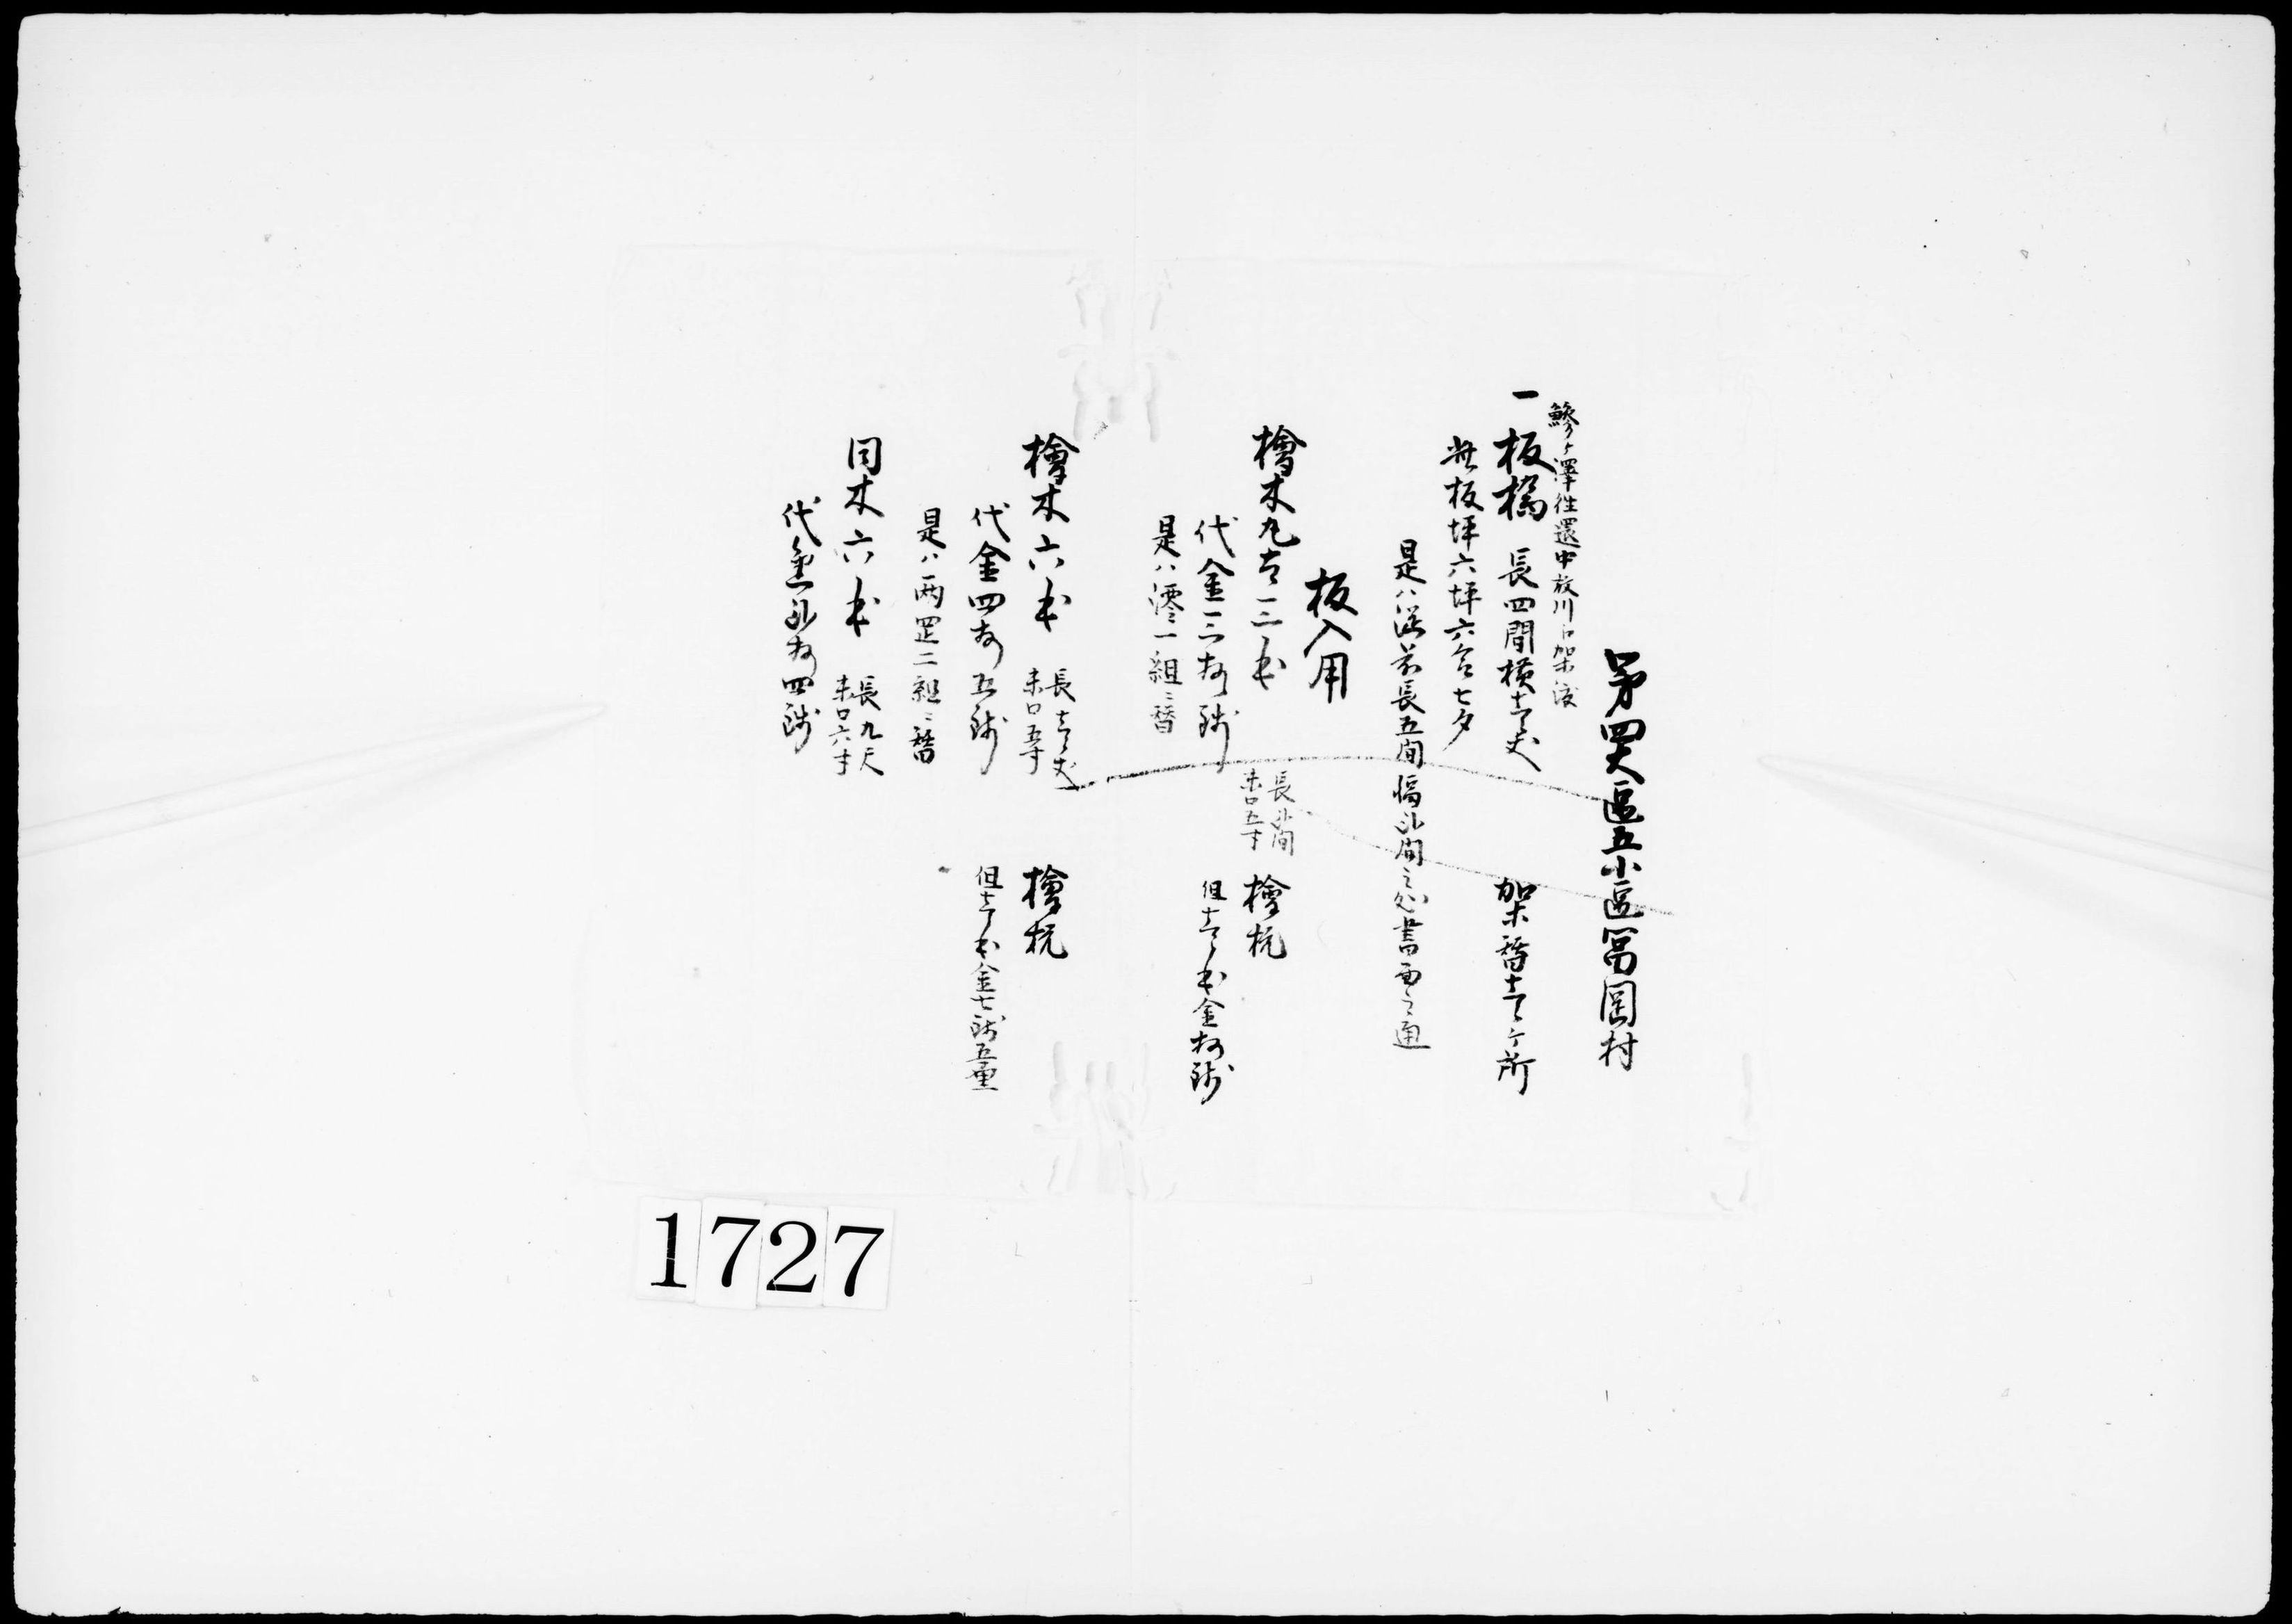 第四大區五小區冨岡村
鰺ヶ澤往還中放川ニ架渡
一板橋 長四間横壱丈 架替壱ヶ所
此板坪六坪六合七夕
是ハ従前長五間幅弐間之処書面之通
板入用
檜木丸太三本 長弐間 末口五寸 檜椌
代金三拾銭 但壱本金拾銭
是ハ澪一組ニ替
檜木六本 長壱丈 末口五寸 檜椌
代金四拾五銭 但壱本金七銭五厘
是ハ両罡二組ニ替
同木六本 長九尺 末口六寸
代金弐拾四銭
1727